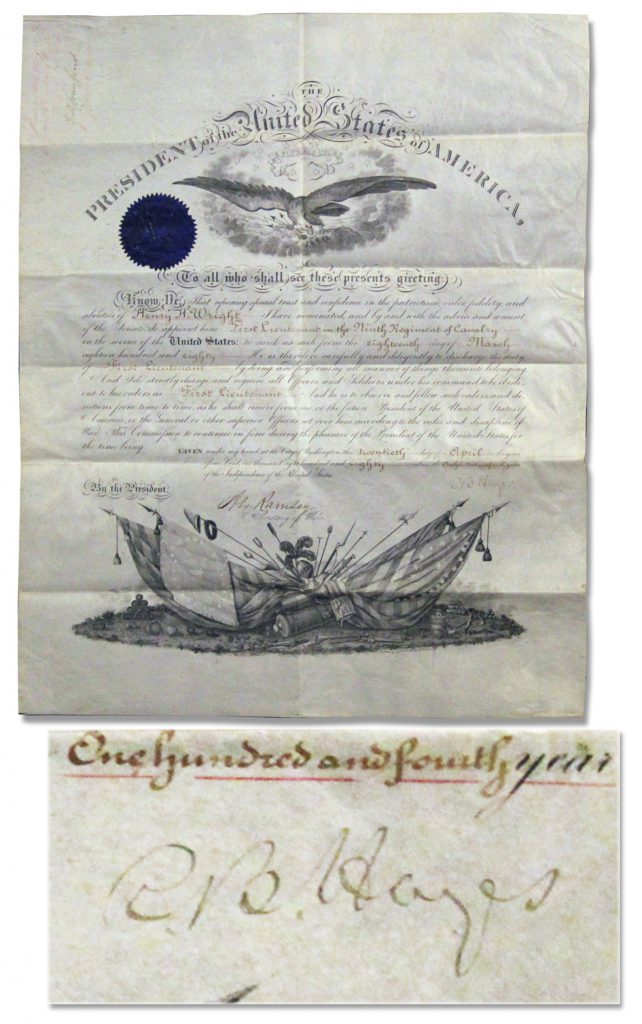 THE
PRESIDENT of the United States of AMERICA,
To all who shall see these presents greeting:
Know Ye, That reposing special trust and confidence in the patriotism, valor, fidelity, and
abilities of Henry H. Wright I have nominated, and by and with the advice and consent
of the Senate do appoint him First Lieutenant in the Ninth Regiment of Cavalry
in the service of the United States: to rank as such from the eighteenth day of March
eighteen hundred and eighty He is therefore carefully and diligently to discharge the duty
of First Lieutenant by doing and performing all manner of things thereunto belonging.
And I do strictly charge and require all Officers and Soldiers under his command to be obedi-
ent to his orders as First Lieutenant And he is to observe and follow such orders and di-
rections from time to time, as he shall receive from me or the future President of the United States of
America, or the General or other superior Officers set over him, according to the rules and discipline of
War. This Commission to continue in force during the pleasure of the President of the United States for
the time being.
GIVEN under my hand, at the City of Washington, this twentieth day of April in the year
of our Lord, one thousand eight hundred and eighty and in the One hundred and fourth year
of the Independence of the United States.
R. B. Hayes
By the President
Alex Ramsey
Secretary of War
One hundred and fourth year
R. B. Hayes